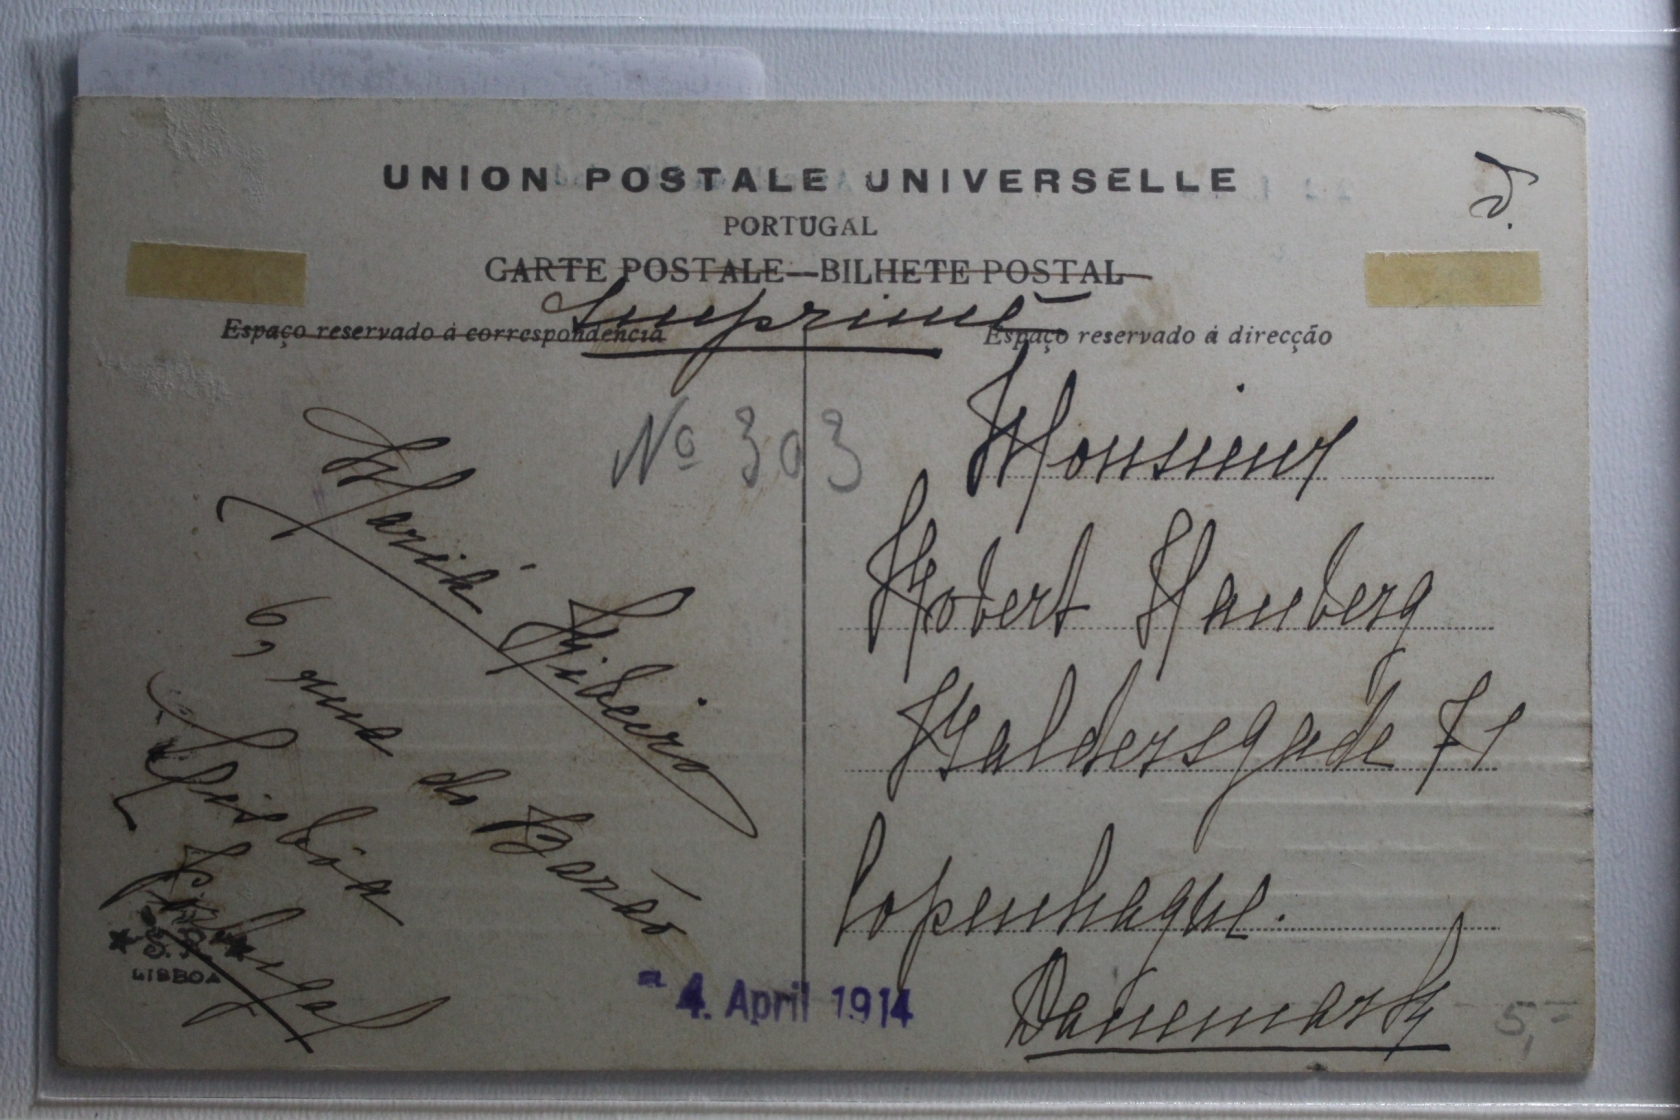 UNION POSTALE UNIVERSELLE
PORTUGAL
CARTE POSTALE—BILHETE POSTAL
Imprimé
Espaço reservado á correspondencia
Espaço reservado á direcção
Nº 303
Monsieur
Robert Hauberg
Baldersgade 71
Copenhague.
Danemark
Ribeiro
6, rua do Barão
Lisbôa
Portugal
LISBOA
- 4. April 1914
5,-